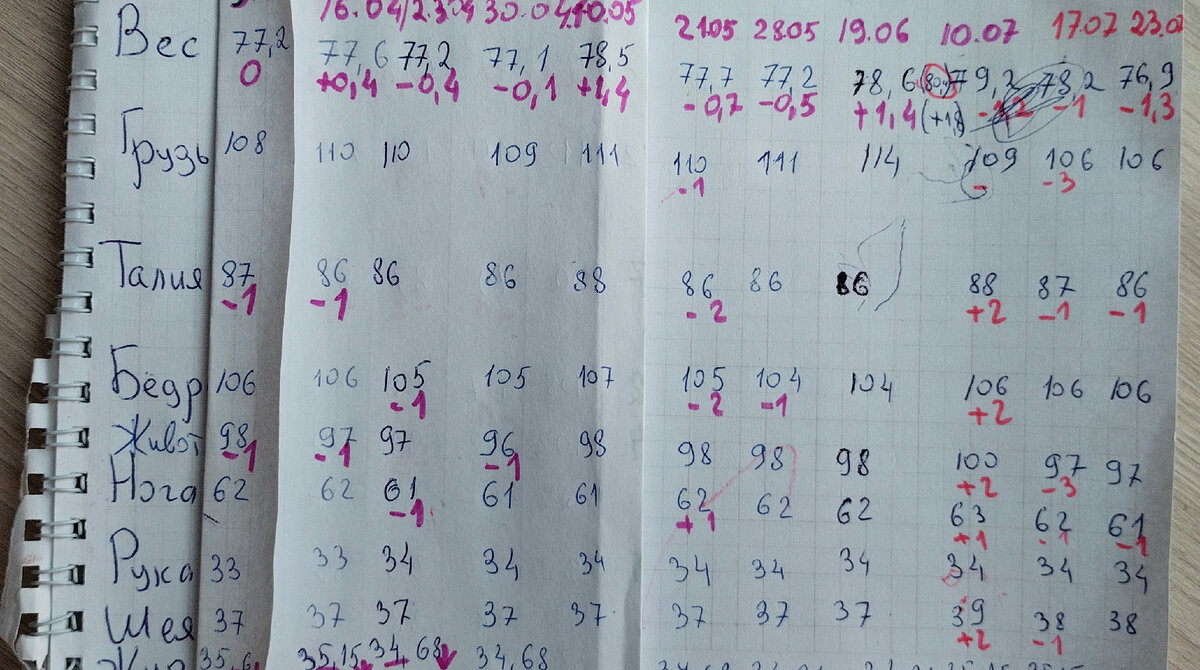 16.04 23.04 30.04 10.05 21.05 28.05 19.06 10.07 17.07 23.07
Вес 77,2 77,6 77,2 77,1 78,5 77,7 77,2 78,6 (80,4) 79,2 78,2 76,9
0 +0,4 -0,4 -0,1 +1,4 -0,7 -0,5 +1,4 (+1,8) -1,2 -1 -1,3
Грузь 108 110 110 109 111 110 111 114 109 106 106
-1 - -3
Талия 87 86 86 86 88 86 86 86 88 87 86
-1 -1 -2 +2 -1 -1
Бёдр 106 106 105 105 107 105 104 104 106 106 106
-1 -2 -1 +2
Живот 98 97 97 96 98 98 98 98 100 97 97
-1 -1 -1 +2 -3
Нога 62 62 61 61 61 62 62 62 63 62 61
-1 +1 +1 -1 -1
Рука 33 33 34 34 34 34 34 34 34 34 34
Шея 37 37 37 37 37 37 37 37 39 38 38
+2 -1
35,6 35,15 34,68 34,68